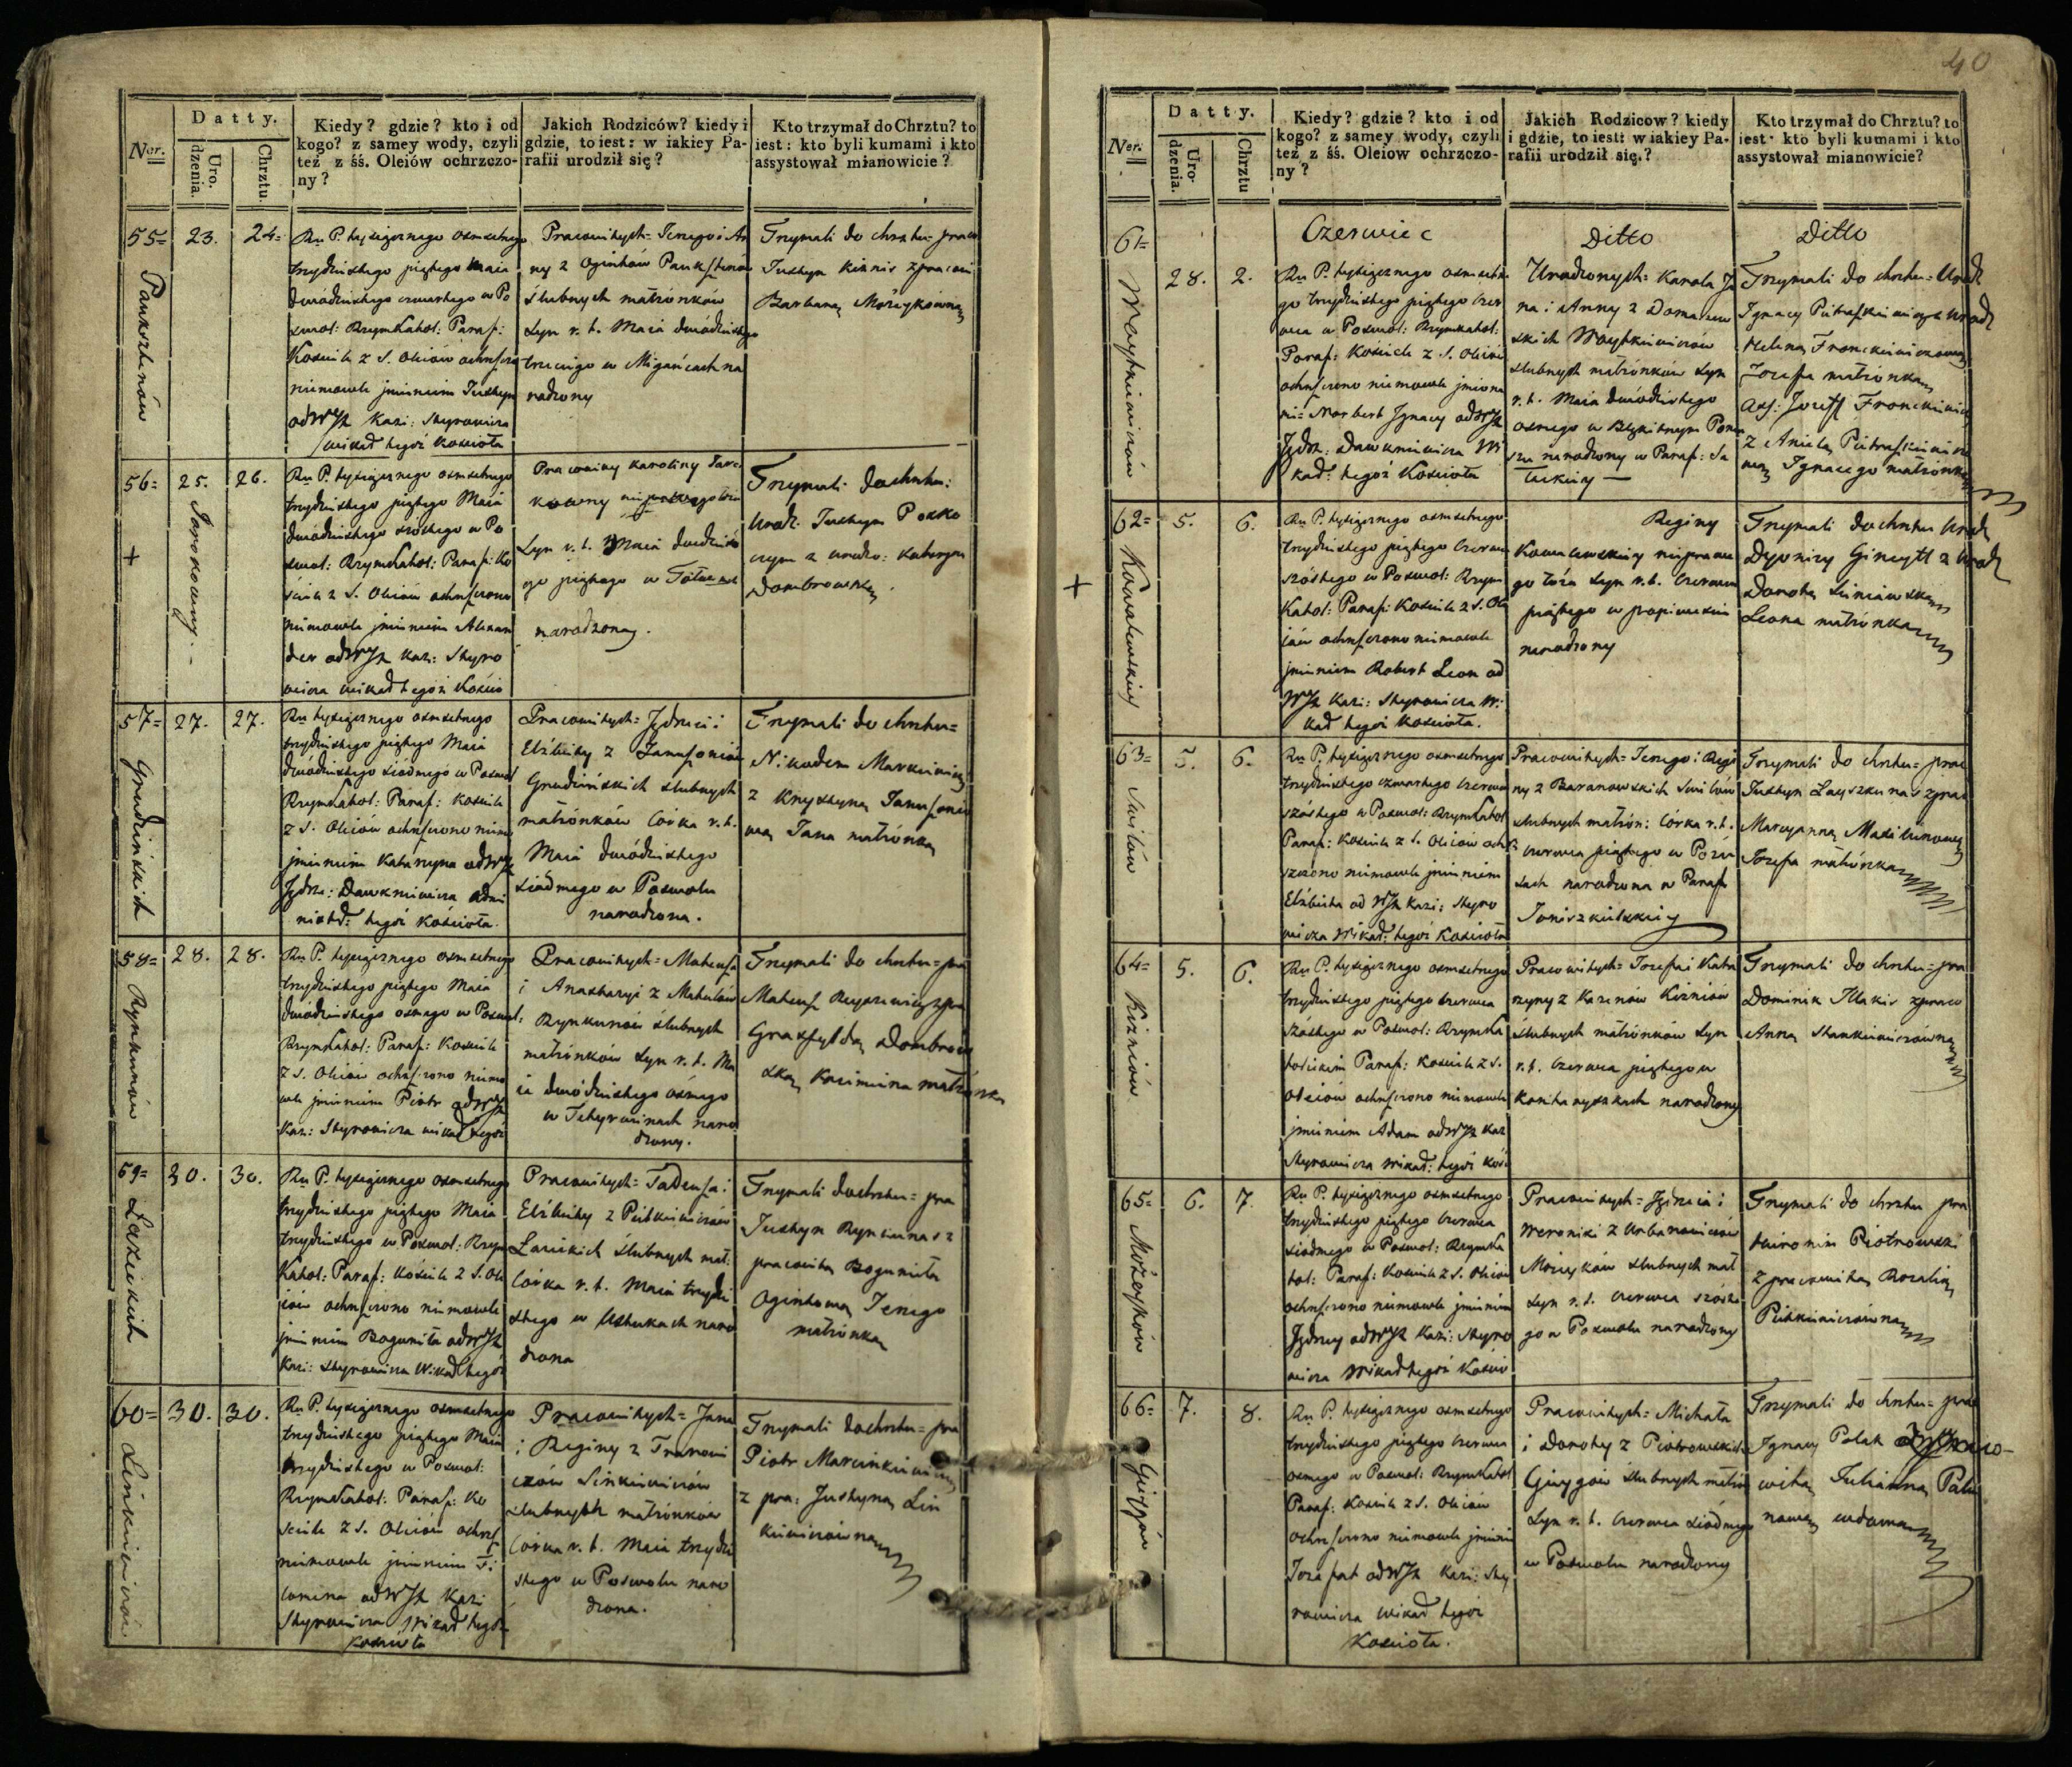 40
Datty.
Ner.
Uro-
dzenia.
Chrztu.
Kiedy? gdzie? kto i od
kogo? z samey wody, czyli
też z śś. Oleiów ochrzczo-
ny?
Jakich Rodziców? kiedy i
gdzie, to iest: w iakiey Pa-
rafii urodził się?
Kto trzymał do Chrztu? to
iest: kto byli kumami i kto
assystował mianowicie?
55=
23.
24=
Pauksztenów
Ru P. tysiącznego osmsetnego
trzydziestego piątego Maia
dwódziestego czwartego w Po
swol: RzymKatol: Paraf:
Kosciele z S. Oleiów ochrszczo
niemowle jmieniem Justyn
od WJX Kazi: Styrowicza
wikad tegoż Koscioła
Pracowitych= Jerzego i An
ny z Oginkow Pauksztenów
slubnych małżonków
Syn r. t. Maia dwódziestego
trzeciego w Migańcach na
rodzony
Trzymali do chrztu= praco
Justyn Kiznis z pracowi
Barbarą Możeykówną
56=
25.
26.
+
Jarokowny.
Ru P. tysiącznego osmsetnego
trzydziestego piątego Maia
dwódziestego szóstego w Po
swol: RzymKatol: Paraf: Ko
ściele z S. Oleiów ochrszczono
niemowle jmieniem Alexan
der od WJX Kazi: Styro
wicza wikad tegoż Koscio
Pracowiney Karoliny Jaro
kowny nieprawego łoża
Syn r. t. Maia dwódzieste
go piątego w
narodzony.
Trzymali do chrztu:
Urodz. Justyn Poszko
z urodzo: Katarzyn
Dombrowską.
57=
27.
27.
Grudzińskich
Ru tysiącznego osmsetnego
trzydziestego piątego Maia
dwódziestego siódmego w Poswol
RzymKatol: Paraf: Kosciele
z S. Oleiów ochrszczono niemo
jmieniem Katarzyna od WJX
Jędrz: Dawkniewicza Admi
nistr: tegoż Kościoła.
Pracowitych= Jędrzeia i
Elżbiety z Janusoniów
Grudzińskich slubnych
małżonków Córka r. t.
Maia dwódziestego
siódmego w Poswolu
narodzona.
Trzymali do chrztu=
Nikodem Markiewicz
z Krystyną Janusonio
wą Jana małżonką
58=
28.
28.
Rynkunów
Ru P. tysiącznego osmsetnego
trzydziestego piątego Maia
dwódziestego osmego w Poswol:
RzymKatol: Paraf: Kosciele
z S. Oleiów ochrszczono niemo
wle jmieniem Piotr od WJX
Kazi: Styrowicza wikad tegoż
Pracowitych= Mateusza
i Anastazyi z Matulów
Rynkunów slubnych
małżonków Syn r. t. Ma
ia dwódziestego ósmego
w Tetyrwinach naro
dzony.
Trzymali do chrztu= pra
Mateusz z pra
Graszyldą Dombrow
ską, Kazimierza małżonką
59=
30.
30.
Łazickich
Ru P. tysiącznego osmsetnego
trzydziestego piątego Maia
trzydziestego w Poswol: Rzym
Katol: Paraf: Kościele z S. Ole
iów ochrszczono niemowle
jmieniem Bogumiła od WJX
Kazi: Styrowicza Wikad tegoż
Pracowitych= Tadeusza i
Elżbiety z Pietkiewiczów
Łazickich slubnych mał:
Córka r. t. Maia trzydzie
stego w Ustukach naro
dzona
Trzymali do chrztu= pra
Justyn Rynkunas z
pracowitą Bogumiłą
Oginkową Jerzego
małżonką
60=
30.
30.
Linkiewiczów
Ru P. tysiącznego osmsetnego
trzydziestego piątego Maia
trzydziestego w Poswol:
RzymKatol: Paraf: Ko
sciele z S. Oleiów ochrsz
niemowle jmieniem
od WJX Kazi
Styrowicza Wikad tegoż
Koscioła
Pracowitych= Jana
i Reginy z
Linkiewiczów
slubnych małżonków
Córka r. t. Maia trzydzie
stego w Poswolu naro
dzona.
Trzymali do chrztu= pra
Piotr Marcinkiewicz
z pra: Justyną Lin
kiewiczówną
Datty.
Ner.
Uro-
dzenia.
Chrztu
Kiedy? gdzie? kto i od
kogo? z samey wody, czyli
też z śś. Oleiow ochrzczo-
ny?
Jakich Rodzicow? kiedy
i gdzie, to iest: w iakiey Pa-
rafii urodził się?
Kto trzymał do Chrztu? to
iest: kto byli kumami i kto
assystował mianowicie?
61=
Czerwiec
Ditto
Ditto
28.
2.
Woytkiewiczów
Ru P. tysiącznego osmsetne
go trzydziestego piątego Czer
wca w Poswol: RzymKatol:
Paraf: Kościele z S. Oleiów
ochrszczono niemowle jmiona
mi= Norbert Jgnacy od WJX
Jędrz: Dawkniewicza Wi
kad: tegoż Kościoła
Urodzonych= Karola Ja
na i Anny z Domaszew
skich Woytkiewiczów
slubnych małżonków Syn
r. t. Maia dwódziestego
osmego w
narodzony w Paraf: Sa
Trzymali do chrztu= Urodz
Jgnacy Pietraszkiewicz z Urodz
Heleną Franckiewiczową
Jozefa małżonką
Ass: Jozeff Franckiewicz
z Anielą Pietraszkiewiczo
wą Jgnacego małżonką
62=
5.
6.
+
Kowalewskiey
Ru P. tysiącznego osmsetnego
trzydziestego piątego Czerwca
szóstego w Poswol: Rzym
Katol: Paraf: Kosciele z S. Ole
iów ochrszczono niemowle
jmieniem Robert Leon od
WJX Kazi: Styrowicza Wi
kad tegoż Koscioła.
Reginy
Kowalewskiey nieprawe
go łóża Syn r. t. Czerwca
piątego w
narodzony
Trzymali do chrztu Urodz
Dyonizy Gineytt z Urodz
Dorotą
Leona małżonką
63=
5.
6.
Swilów
Ru P. tysiącznego osmsetnego
trzydziestego czwartego Czerwca
szóstego w Poswol: RzymKatol
Paraf: Kosciele z S. Oleiów ochr
szczono niemowle jmieniem
Elżbieta od WJX Kazi: Styro
wicza Wikad: tegoż Koscioła
Pracowitych= Jerzego i Regi
ny z Baranowskich Swilów
slubnych małżon: Córka r. t.
Czerwca piątego w
narodzona w Paraf
Joniszkielskiey
Trzymali do chrztu= prac
Justyn Łayszkunas z prac
Maryanną
Jozefa małżonką
64=
5.
6.
Kiżniów
Ru P. tysiącznego osmsetnego
trzydziestego piątego Czerwca
szóstego w Poswol: RzymKa
tolickim Paraf: Kosciele z S.
Oleiów ochrszczono niemowle
jmieniem Adam od WJX Kaz
Styrowicza Wikad: tegoż Kości
Pracowitych= Jozefa i Kata
rzyny z Kazenów Kiżniów
slubnych małżonków Syn
r. t. Czerwca piątego w
narodzony
Trzymali do chrztu= pra
Dominik z praco
Anną Stankiewiczówną
65=
6.
7.
Możeyków
Ru P. tysiącznego osmsetnego
trzydziestego piątego Czerwca
siódmego w Poswol: RzymKa
tol: Paraf: Kosciele z S. Oleiów
ochrszczono niemowle jmieniem
Jędrzey od WJX Kazi: Styro
wicza Wikad tegoż Koscio
Pracowitych= Jędrzeia i
Weroniki z Urbanowiczów
Możeyków slubnych mał
Syn r. t. Czerwca szóste
go w Poswolu narodzony
Trzymali do chrztu pra
Hieronim Piotrowski
z pracowitą Rozalią
Pietkiewiczówną
66=
7.
8.
Girygów
Ru P. tysiącznego osmsetnego
trzydziestego piątego Czerwca
osmego w Poswol: RzymKatol
Paraf: Kosciele z S. Oleiów
ochrszczono niemowle jmieni
Jozafat od WJX Kazi: Sty
rowicza wikad tegoż
Koscioła.
Pracowitych= Michała
i Doroty z Piotrowskich
Girygów slubnych małżon
Syn r. t. Czerwca siódmego
w Poswolu narodzony
Trzymali do chrztu= prac
Jgnacy Polak
witą Julianną
wdową